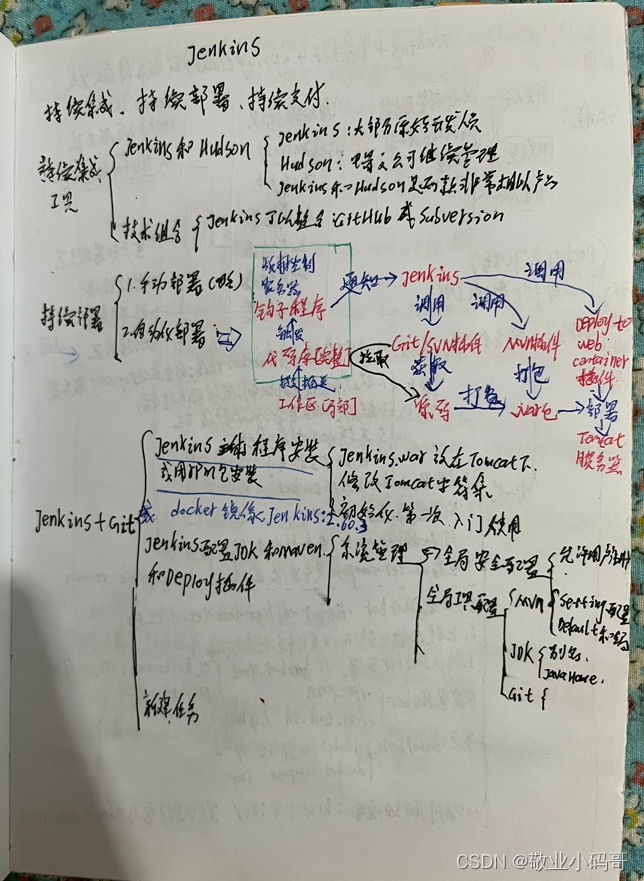 Jenkins
持续集成、持续部署、持续交付.
持续集成
工具
Jenkins和Hudson
Jenkins:大部分原始开发人员
Hudson:甲骨文公司继续管理
Jenkins和Hudson是两款非常相似产品
技术组合
Jenkins可以整合GitHub或Subversion
持续部署
1.手动部署
2.自动化部署
钩子程序
触发
代码库[远程]
工作区
通知
Jenkins
调用
调用
调用
拉取
Git/SVN插件
MVN插件
Deploy to
web
container
插件
获取
打包
源码
打包
war包
部署
Tomcat
服务器
Jenkins+Git
Jenkins 主程序安装
或用rpm包安装
Jenkins.war 放在Tomcat下
修改Tomcat字符集
或 docker镜像 Jenkins:2.60.3
初始化.第一次入门使用
Jenkins配置JDK和maven
和Deploy插件
系统管理
全局安全配置
允许用户注册
全局工具配置
MVN
Setting配置
Default
JDK
别名.
JavaHome.
Git
新建任务
CSDN @敬业小码哥